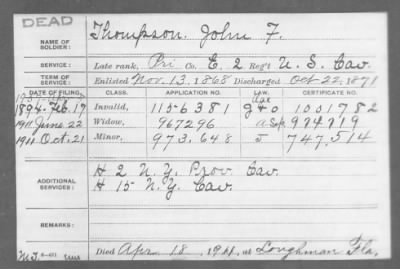 DEAD
NAME OF SOLDIER: Thompson, John F.
SERVICE: Late rank, Pri Co. E, 2 Reg't U. S. Cav.
TERM OF SERVICE: Enlisted Nov. 13, 1868 Discharged Oct 22, 1871
DATE OF FILING. CLASS. APPLICATION NO. LAW. CERTIFICATE NO.
1894 Feb. 17 Invalid, 1156381 1001782
1911 June 22 Widow, 967296 974719
1911 Oct. 21 Minor, 973.648 747.514
ADDITIONAL SERVICES: H 2 N.Y. Prov. Cav.
H 15 N.Y. Cav.
REMARKS:
Died Apr. 18, 1911, at Loughman Fla,